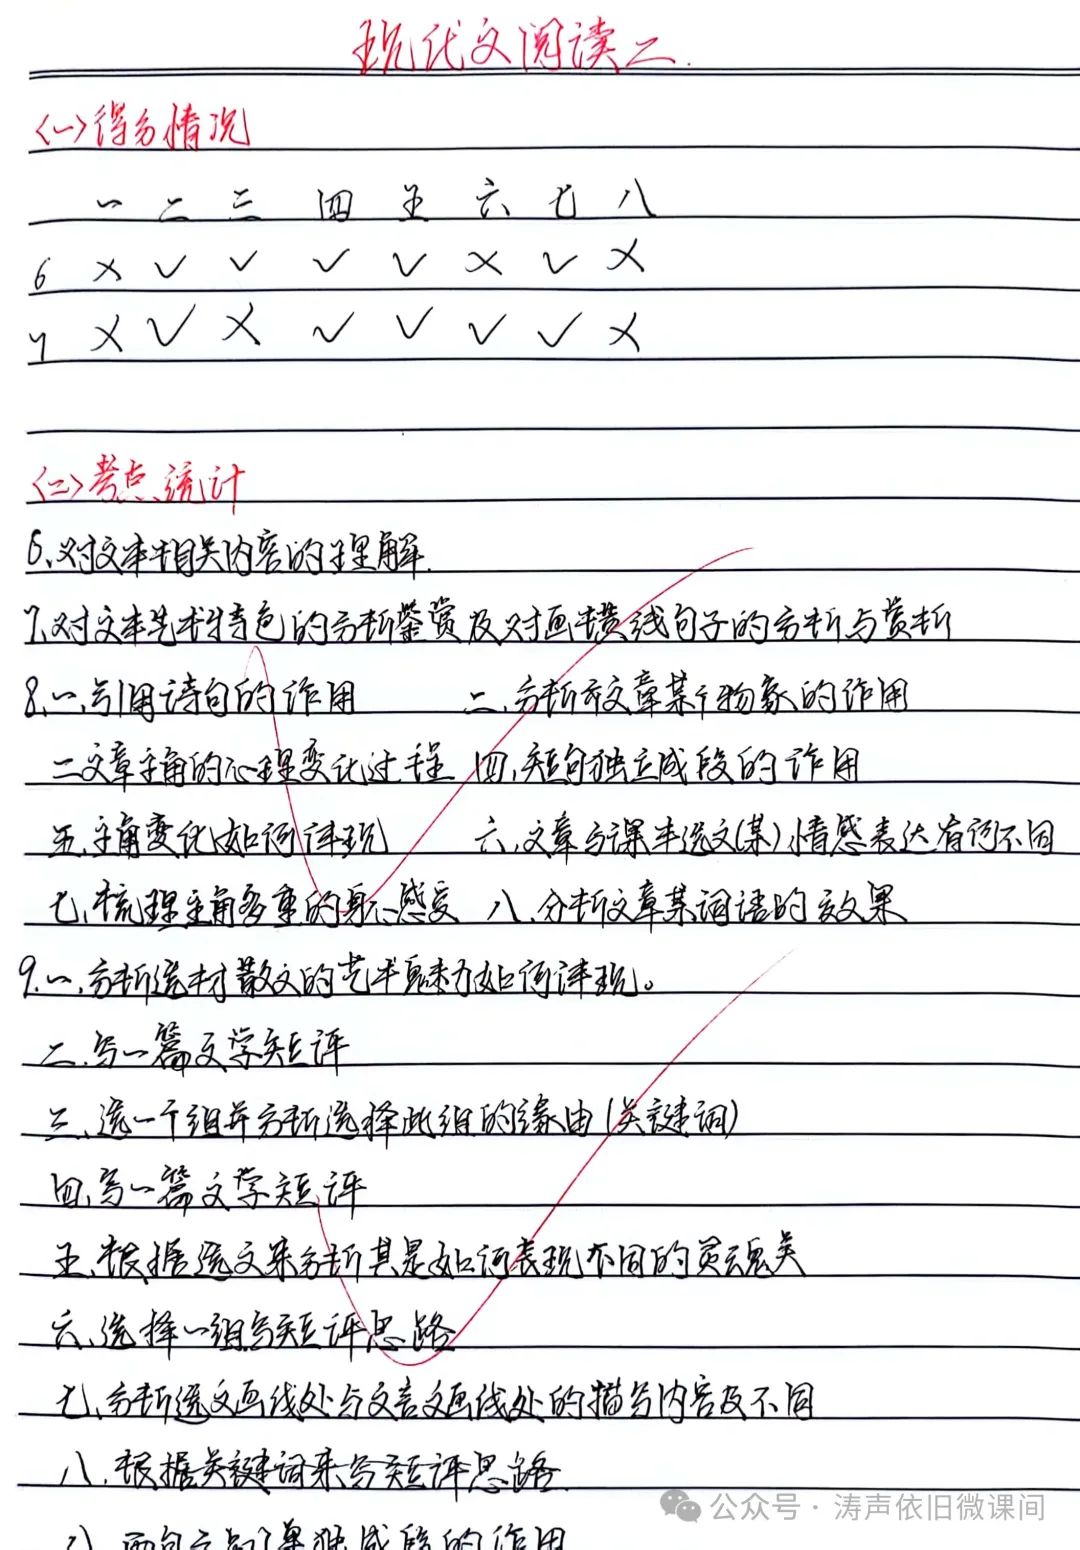 现代文阅读二.
<一>得分情况
一 二 三 四 五 六 七 八
6 × ✓ ✓ ✓ ✓ × ✓ ×
7 × ✓ × ✓ ✓ ✓ ✓ ×
<二>考点统计
6、对文本相关内容的理解.
7、对文本艺术特色的分析鉴赏及对画横线句子的分析与赏析
8、一、引用诗句的作用 二、分析文章某个物象的作用
二文章主角的心理变化过程 四、短句独立成段的作用
五、主角变化如何详现 六、文章与课本选文(某)情感表达有何不同
七、梳理主角多重的身心感受 八、分析文章某词语的效果
9.一、分析选材散文的艺术魅力如何详现。
二、写一篇文学短评
三、选一个组并分析选择此组的缘由(关键词)
四、写一篇文学短评
五、根据选文来分析其是如何表现不同的灵魂美
六、选择一组写短评思路
七、分析选文画线处与文言文画线处的描写内容及不同
八、根据关键词来写短评思路
公众号·涛声依旧微课间